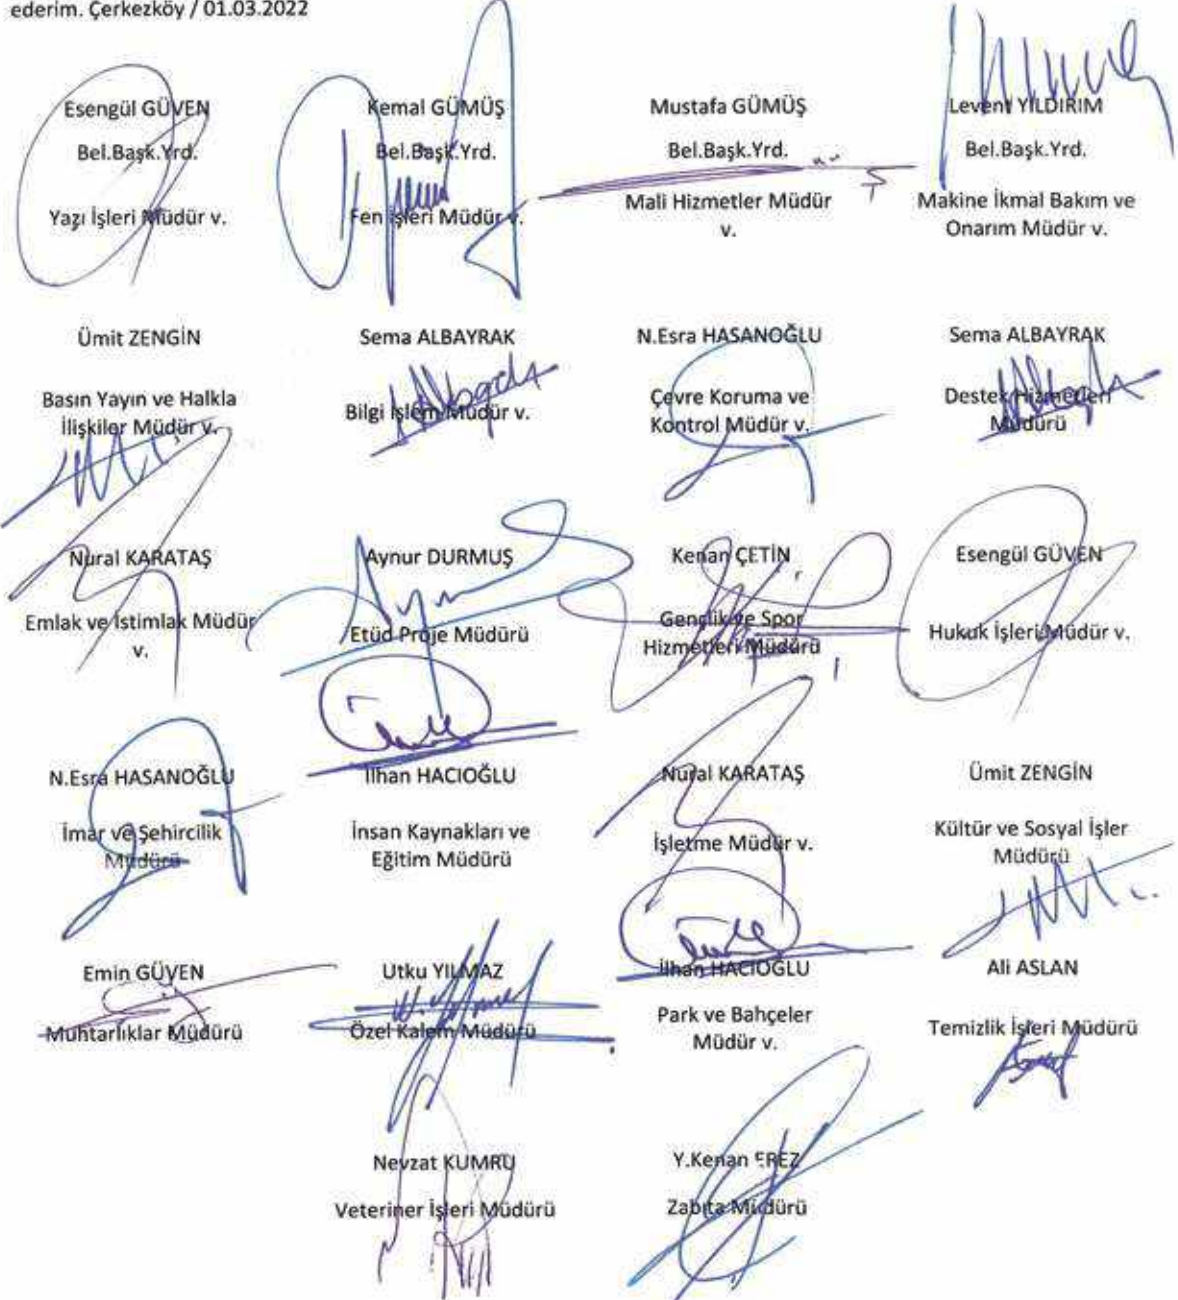 ederim. Çerkezköy / 01.03.2022
Esengül GÜVEN
Bel.Başk.Yrd.
Yazı İşleri Müdür v.
Kemal GÜMÜŞ
Bel.Başk.Yrd.
Fen işleri Müdür v.
Mustafa GÜMÜŞ
Bel.Başk.Yrd.
Mali Hizmetler Müdür
v.
Levent YILDIRIM
Bel.Başk.Yrd.
Makine İkmal Bakım ve
Onarım Müdür v.
Ümit ZENGİN
Basın Yayın ve Halkla
İlişkiler Müdür v.
Sema ALBAYRAK
Bilgi İşlem Müdür v.
N.Esra HASANOĞLU
Çevre Koruma ve
Kontrol Müdür v.
Sema ALBAYRAK
Destek Hizmetleri
Müdürü
Nural KARATAŞ
Emlak ve İstimlak Müdür
v.
Aynur DURMUŞ
Etüd Proje Müdürü
Kenan ÇETİN
Gençlik ve Spor
Hizmetleri Müdürü
Esengül GÜVEN
Hukuk İşleri Müdür v.
N.Esra HASANOĞLU
İmar ve Şehircilik
Müdürü
İlhan HACIOĞLU
İnsan Kaynakları ve
Eğitim Müdürü
Nural KARATAŞ
İşletme Müdür v.
Ümit ZENGİN
Kültür ve Sosyal İşler
Müdürü
Emin GÜVEN
Muhtarlıklar Müdürü
Utku YILMAZ
Özel Kalem Müdürü
İlhan HACIOĞLU
Park ve Bahçeler
Müdür v.
Ali ASLAN
Temizlik İşleri Müdürü
Nevzat KUMRU
Veteriner İşleri Müdürü
Y.Kenan EREZ
Zabıta Müdürü